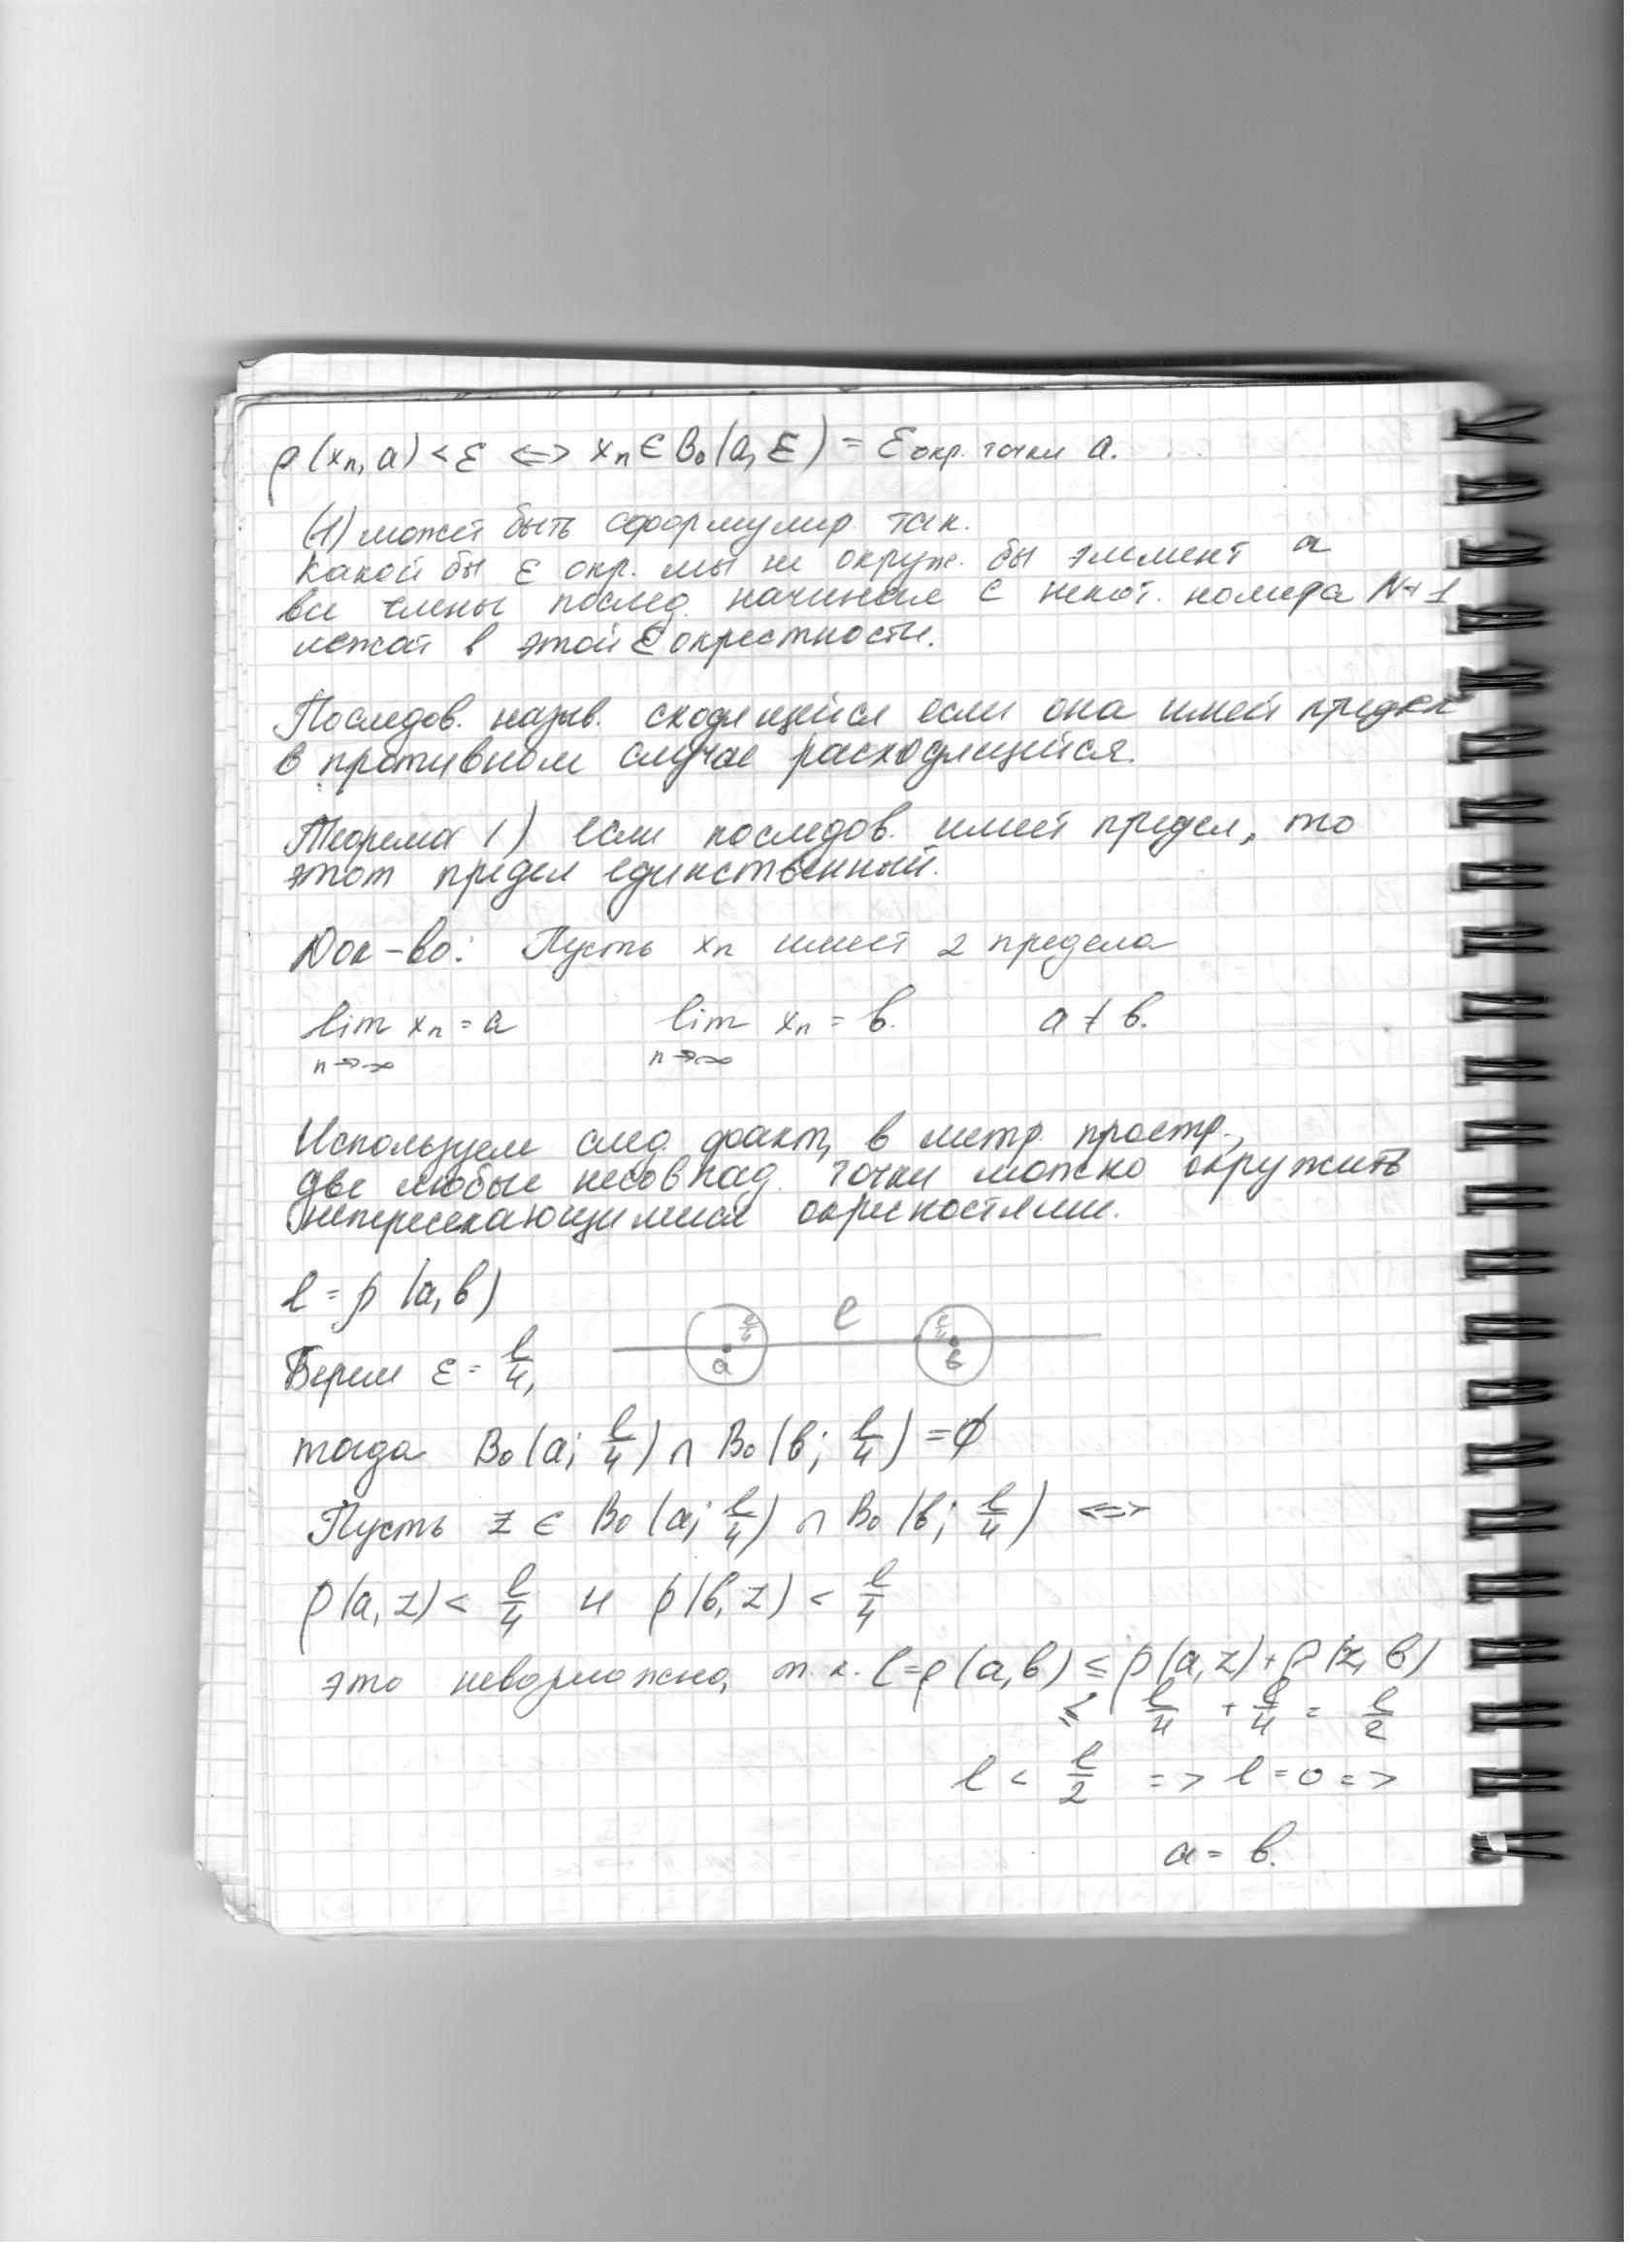 ρ(xₙ, a) < ε <=> xₙ ∈ B₀(a, ε) = ε окр. точки a.
(1) может быть сформулир. так.
Какой бы ε окр. мы не окруж. бы элемент a
все члены послед. начиная с некот. номера N+1
лежат в этой ε окрестности.
Последов. назыв. сходящейся если она имеет предел
в противном случае расходящийся.
Теорема 1) если последов. имеет предел, то
этот предел единственный.
Док-во: Пусть xₙ имеет 2 предела
lim xₙ = a lim xₙ = b. a ≠ b.
n→∞ n→∞
Используем след. факт, в метр. простр.,
две любые несовпад. точки можно окружить
непересекающимися окресностями.
l = ρ (a, b)
l
l/4 l/4
a b
Берем ε = l/4,
тогда B₀(a; l/4) ∩ B₀(b; l/4) = ∅
Пусть z ∈ B₀(a; l/4) ∩ B₀(b; l/4) <=>
ρ(a, z) < l/4 и ρ(b, z) < l/4
это невозможно, т.к. l = ρ(a, b) ≤ ρ(a, z) + ρ(z, b)
≤ l/4 + l/4 = l/2
l < l/2 => l = 0 =>
a = b.